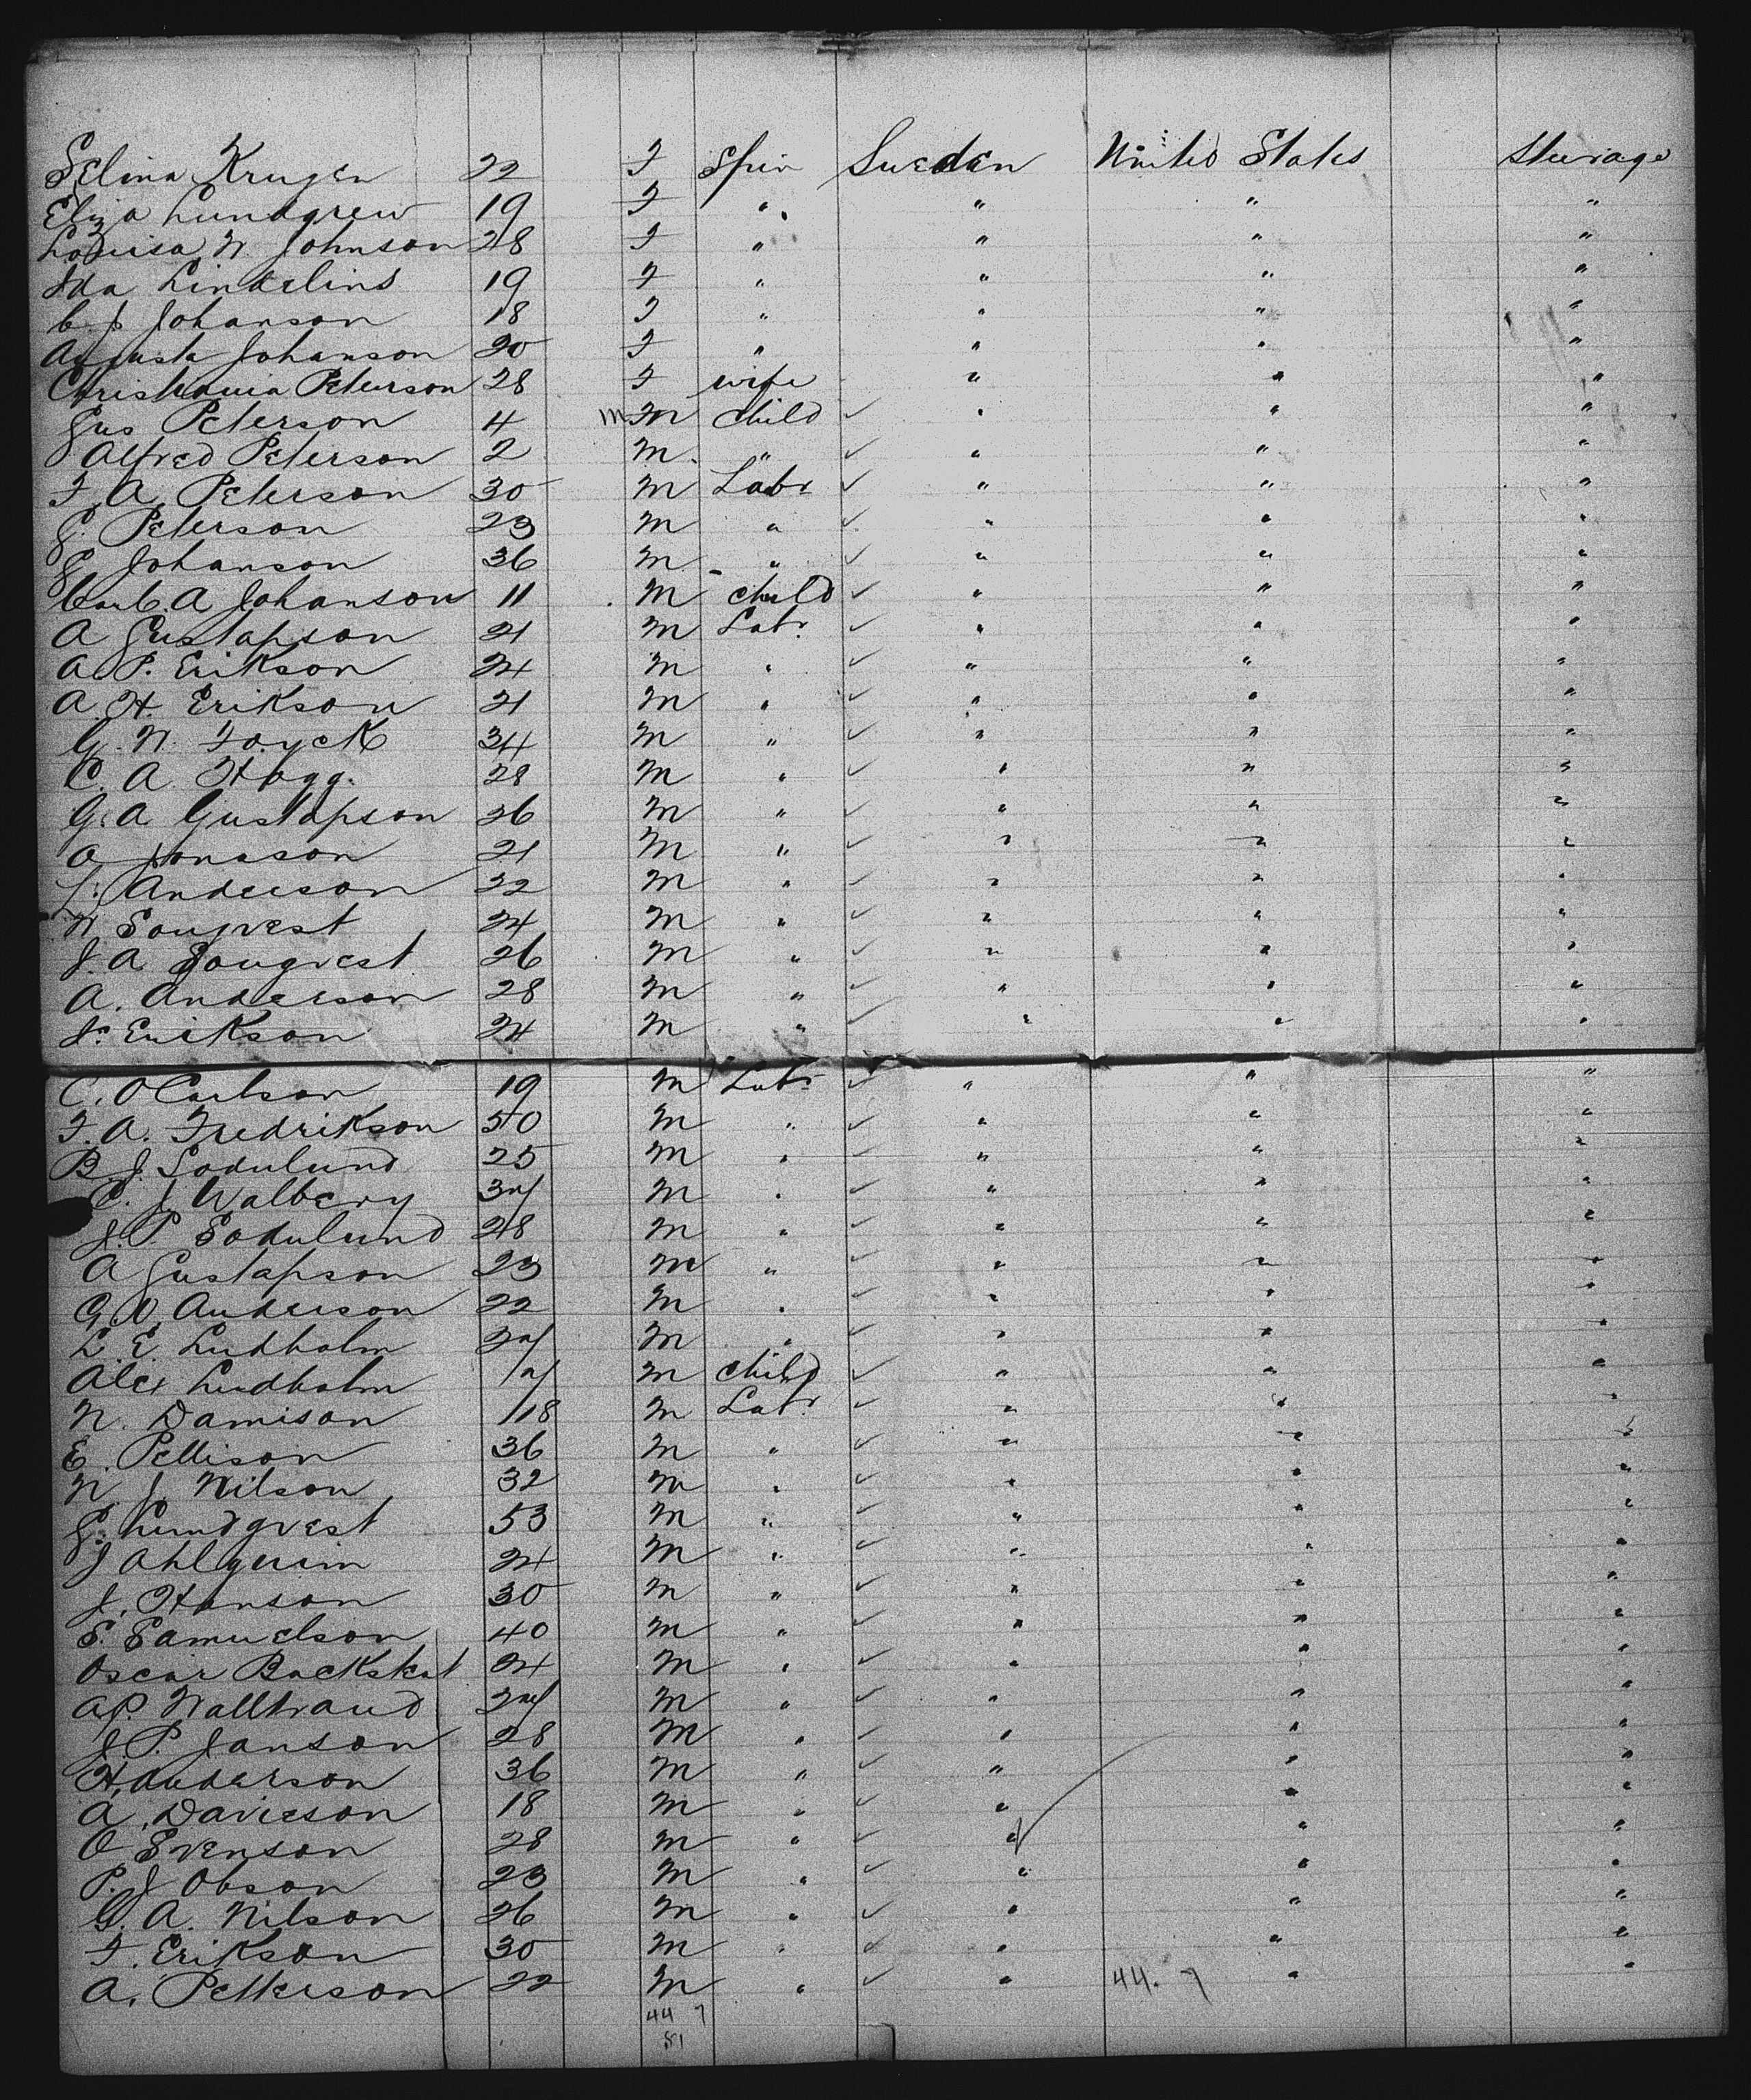 Selina Krugen 22 F Spin Sweden United States Steerage
Eliza Lundgrew 19 F " " " "
Louisa N. Johnson 28 F " " " "
Ida Lindelins 19 F " " " "
C. J. Johanson 18 F " " " "
Augusta Johanson 20 F " " " "
Christiania Peterson 28 F wife " " "
Gus Peterson 4 m M child ✓ " " "
Alfred Peterson 2 M " ✓ " " "
F. A. Peterson 30 M Labr ✓ " " "
G. Peterson 23 M " ✓ " " "
G. Johanson 36 M " ✓ " " "
Carl. A Johanson 11 M child ✓ " " "
A Gustafson 21 M Labr ✓ " " "
A. P. Erikson 24 M " ✓ " " "
A. H. Erikson 21 M " ✓ " " "
G. N. Foyck 34 M " ✓ " " "
C. A. Hagg. 28 M " ✓ " " "
G. A Gustafson 26 M " ✓ " " "
A Jonason 21 M " ✓ " " "
L. Anderson 22 M " ✓ " " "
N. Songvest 24 M " ✓ " " "
J. A. Songvest 26 M " ✓ " " "
A. Anderson 28 M " ✓ " " "
Jr. Erikson 24 M " ✓ " " "
C. O Carlson 19 M Labr ✓ " " "
F. A. Fredrikson 50 M " ✓ " " "
B. J. Sodulund 25 M " ✓ " " "
C. J. Walbery M " ✓ " " "
J. P Sodulund 28 M " ✓ " " "
A Gustafson 23 M " ✓ " " "
G. O. Anderson 22 M " ✓ " " "
L. E. Lindholm M " ✓ " " "
Alex Lindholm M child ✓ " " "
N. Damison 18 M Labr ✓ " " "
E. Pettison 36 M " ✓ " " "
N. J. Nilson 32 M " ✓ " " "
G. Lundgvest 53 M " ✓ " " "
J Ahlquim 24 M " ✓ " " "
J. Hanson 30 M " ✓ " " "
S. Samuelson 40 M " ✓ " " "
Oscar Backskat 24 M " ✓ " " "
A. P. Walltraud M " ✓ " " "
J. P. Janson 28 M " ✓ " " "
H. Anderson 36 M " ✓ " " "
A. Davieson 18 M " ✓ " " "
O Svenson 28 M " ✓ " " "
P. J Obson 23 M " ✓ " " "
G. A. Nilson 26 M " ✓ " " "
F. Erikson 30 M " ✓ " " "
A. Petterson 22 M " ✓ " 44. 7 " "
44 7
51